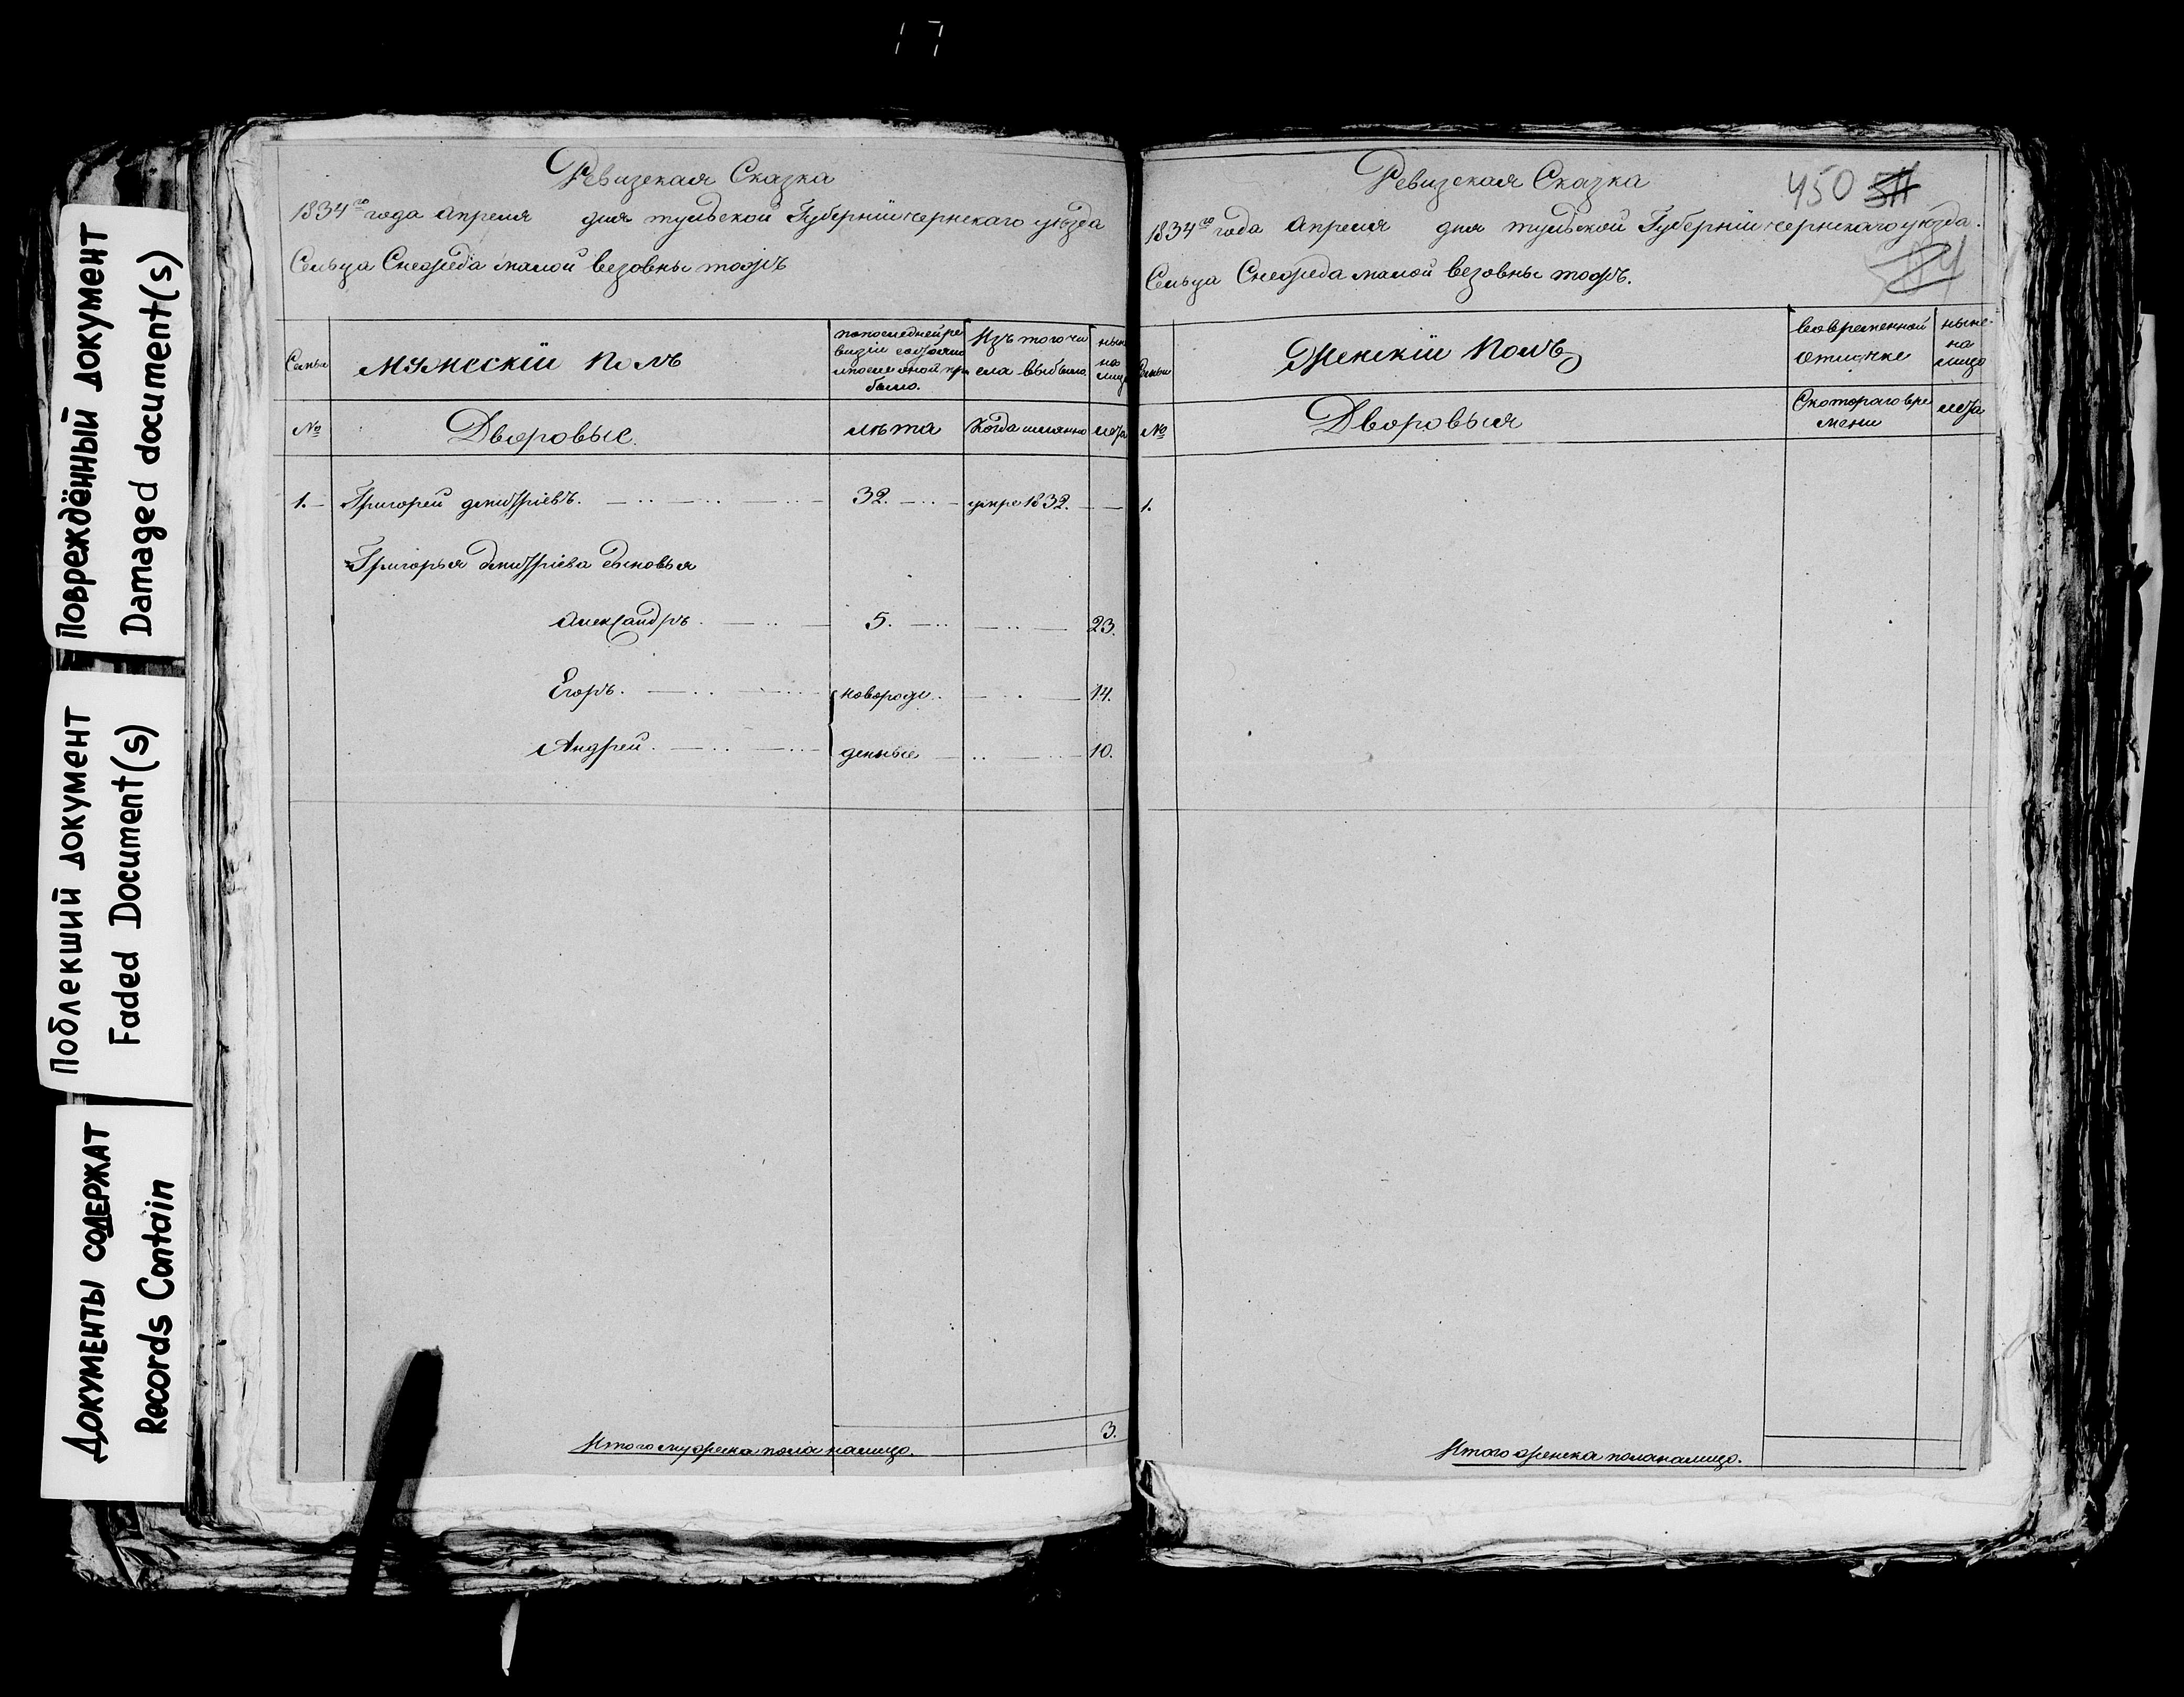 17
Повреждённый документ
Damaged document(s)
Поблекший документ
Faded Document(s)
Документы содержат
Records Contain
Ревизская Сказка
1834го года Апреля дня тульской Губернии чернскаго уѣзда
Сельца Снежеда малой везовны тожъ
Семьи
Мужескій Полъ
по последней ре
визіи состояло
и после оной при
было.
Изъ того чи
сла выбыло
ныне
на
лицо
№
Дворовые.
лѣта
Когда имянно
лета
1. Григорей дмитріевъ. 32. умре 1832.
Григорья дмитріева сыновья
Александръ. 5. 23.
Егоръ. новорож 14.
Андрей. денные 10.
3.
Итого мужеска пола налицо.
Ревизская Сказка
450
1834го года Апреля дня тульской Губерніи чернскаго уѣзда.
Сельца Снежеда малой везовны тожъ.
Семьи
Женскій Полъ
во временной
отлучке
ныне
на
лицо
№
Дворовыя
С котораго вре
мени
лета
1.
Итого женска пола налицо.